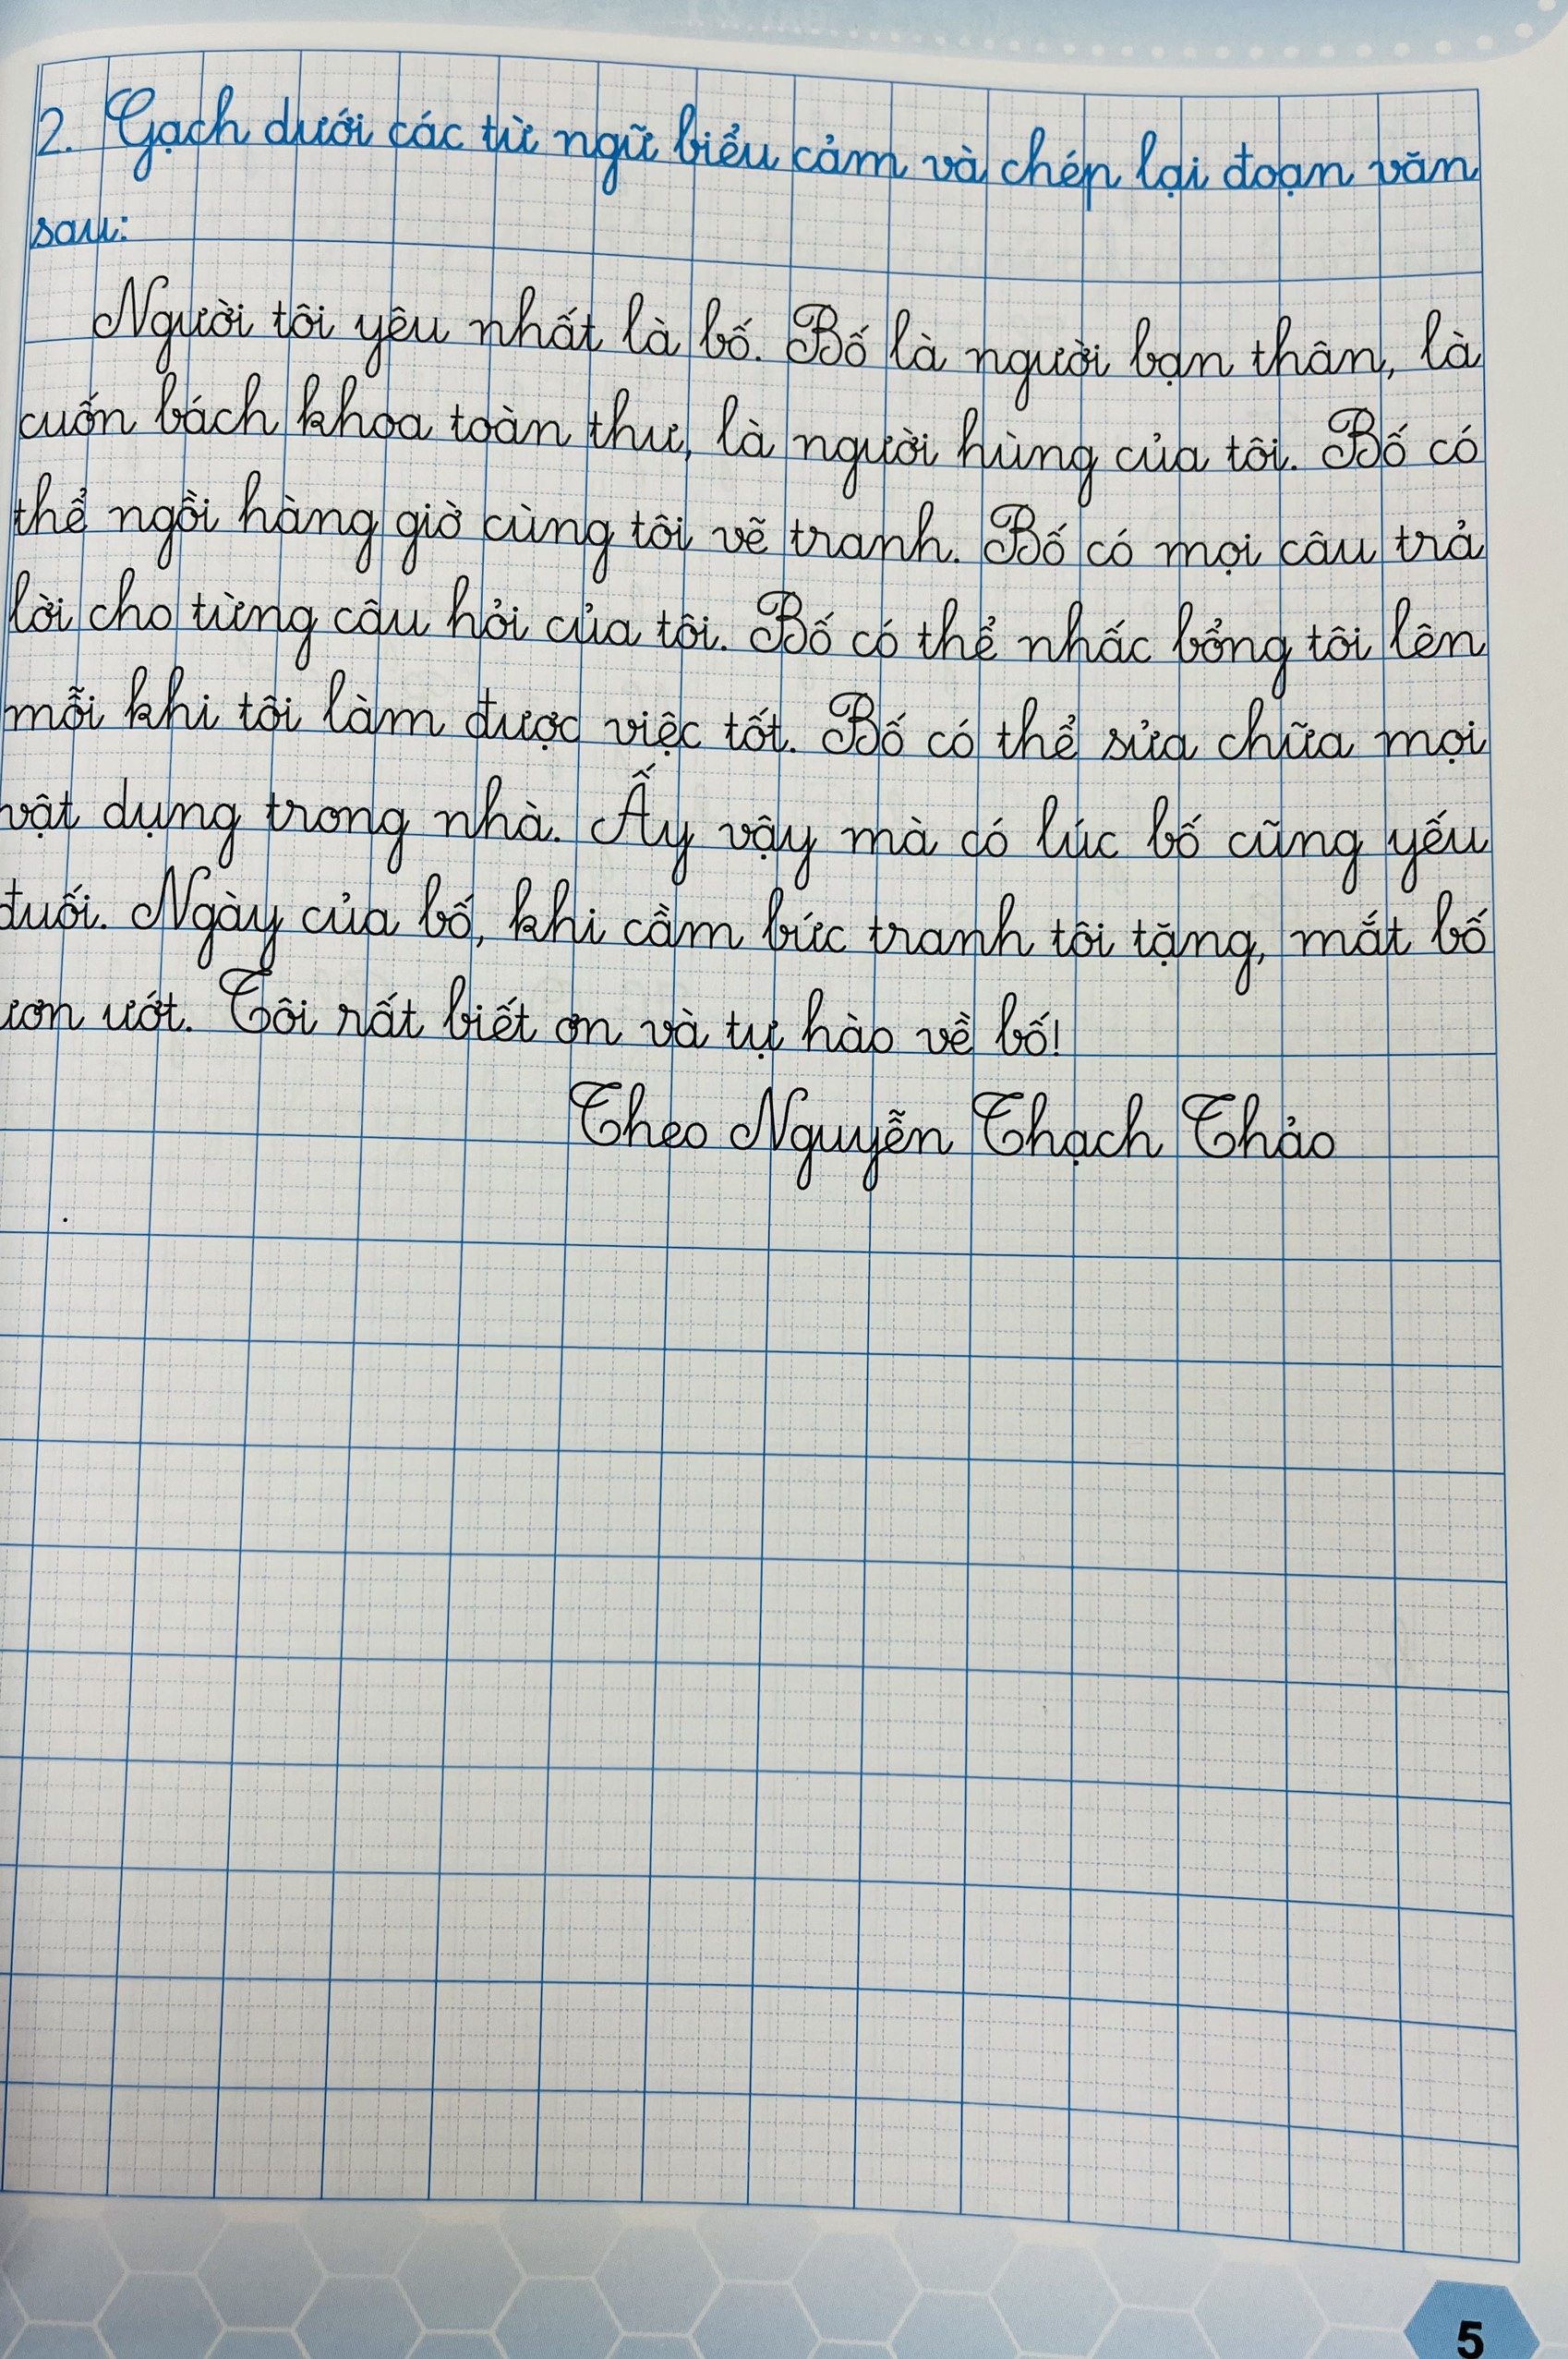 2. Gạch dưới các từ ngữ biểu cảm và chép lại đoạn văn
sau:
Người tôi yêu nhất là bố. Bố là người bạn thân, là
cuốn bách khoa toàn thư, là người hùng của tôi. Bố có
thể ngồi hàng giờ cùng tôi vẽ tranh. Bố có mọi câu trả
lời cho từng câu hỏi của tôi. Bố có thể nhấc bổng tôi lên
mỗi khi tôi làm được việc tốt. Bố có thể sửa chữa mọi
vật dụng trong nhà. Ấy vậy mà có lúc bố cũng yếu
đuối. Ngày của bố, khi cầm bức tranh tôi tặng, mắt bố
ươn ướt. Tôi rất biết ơn và tự hào về bố!
Theo Nguyễn Thạch Thảo
5